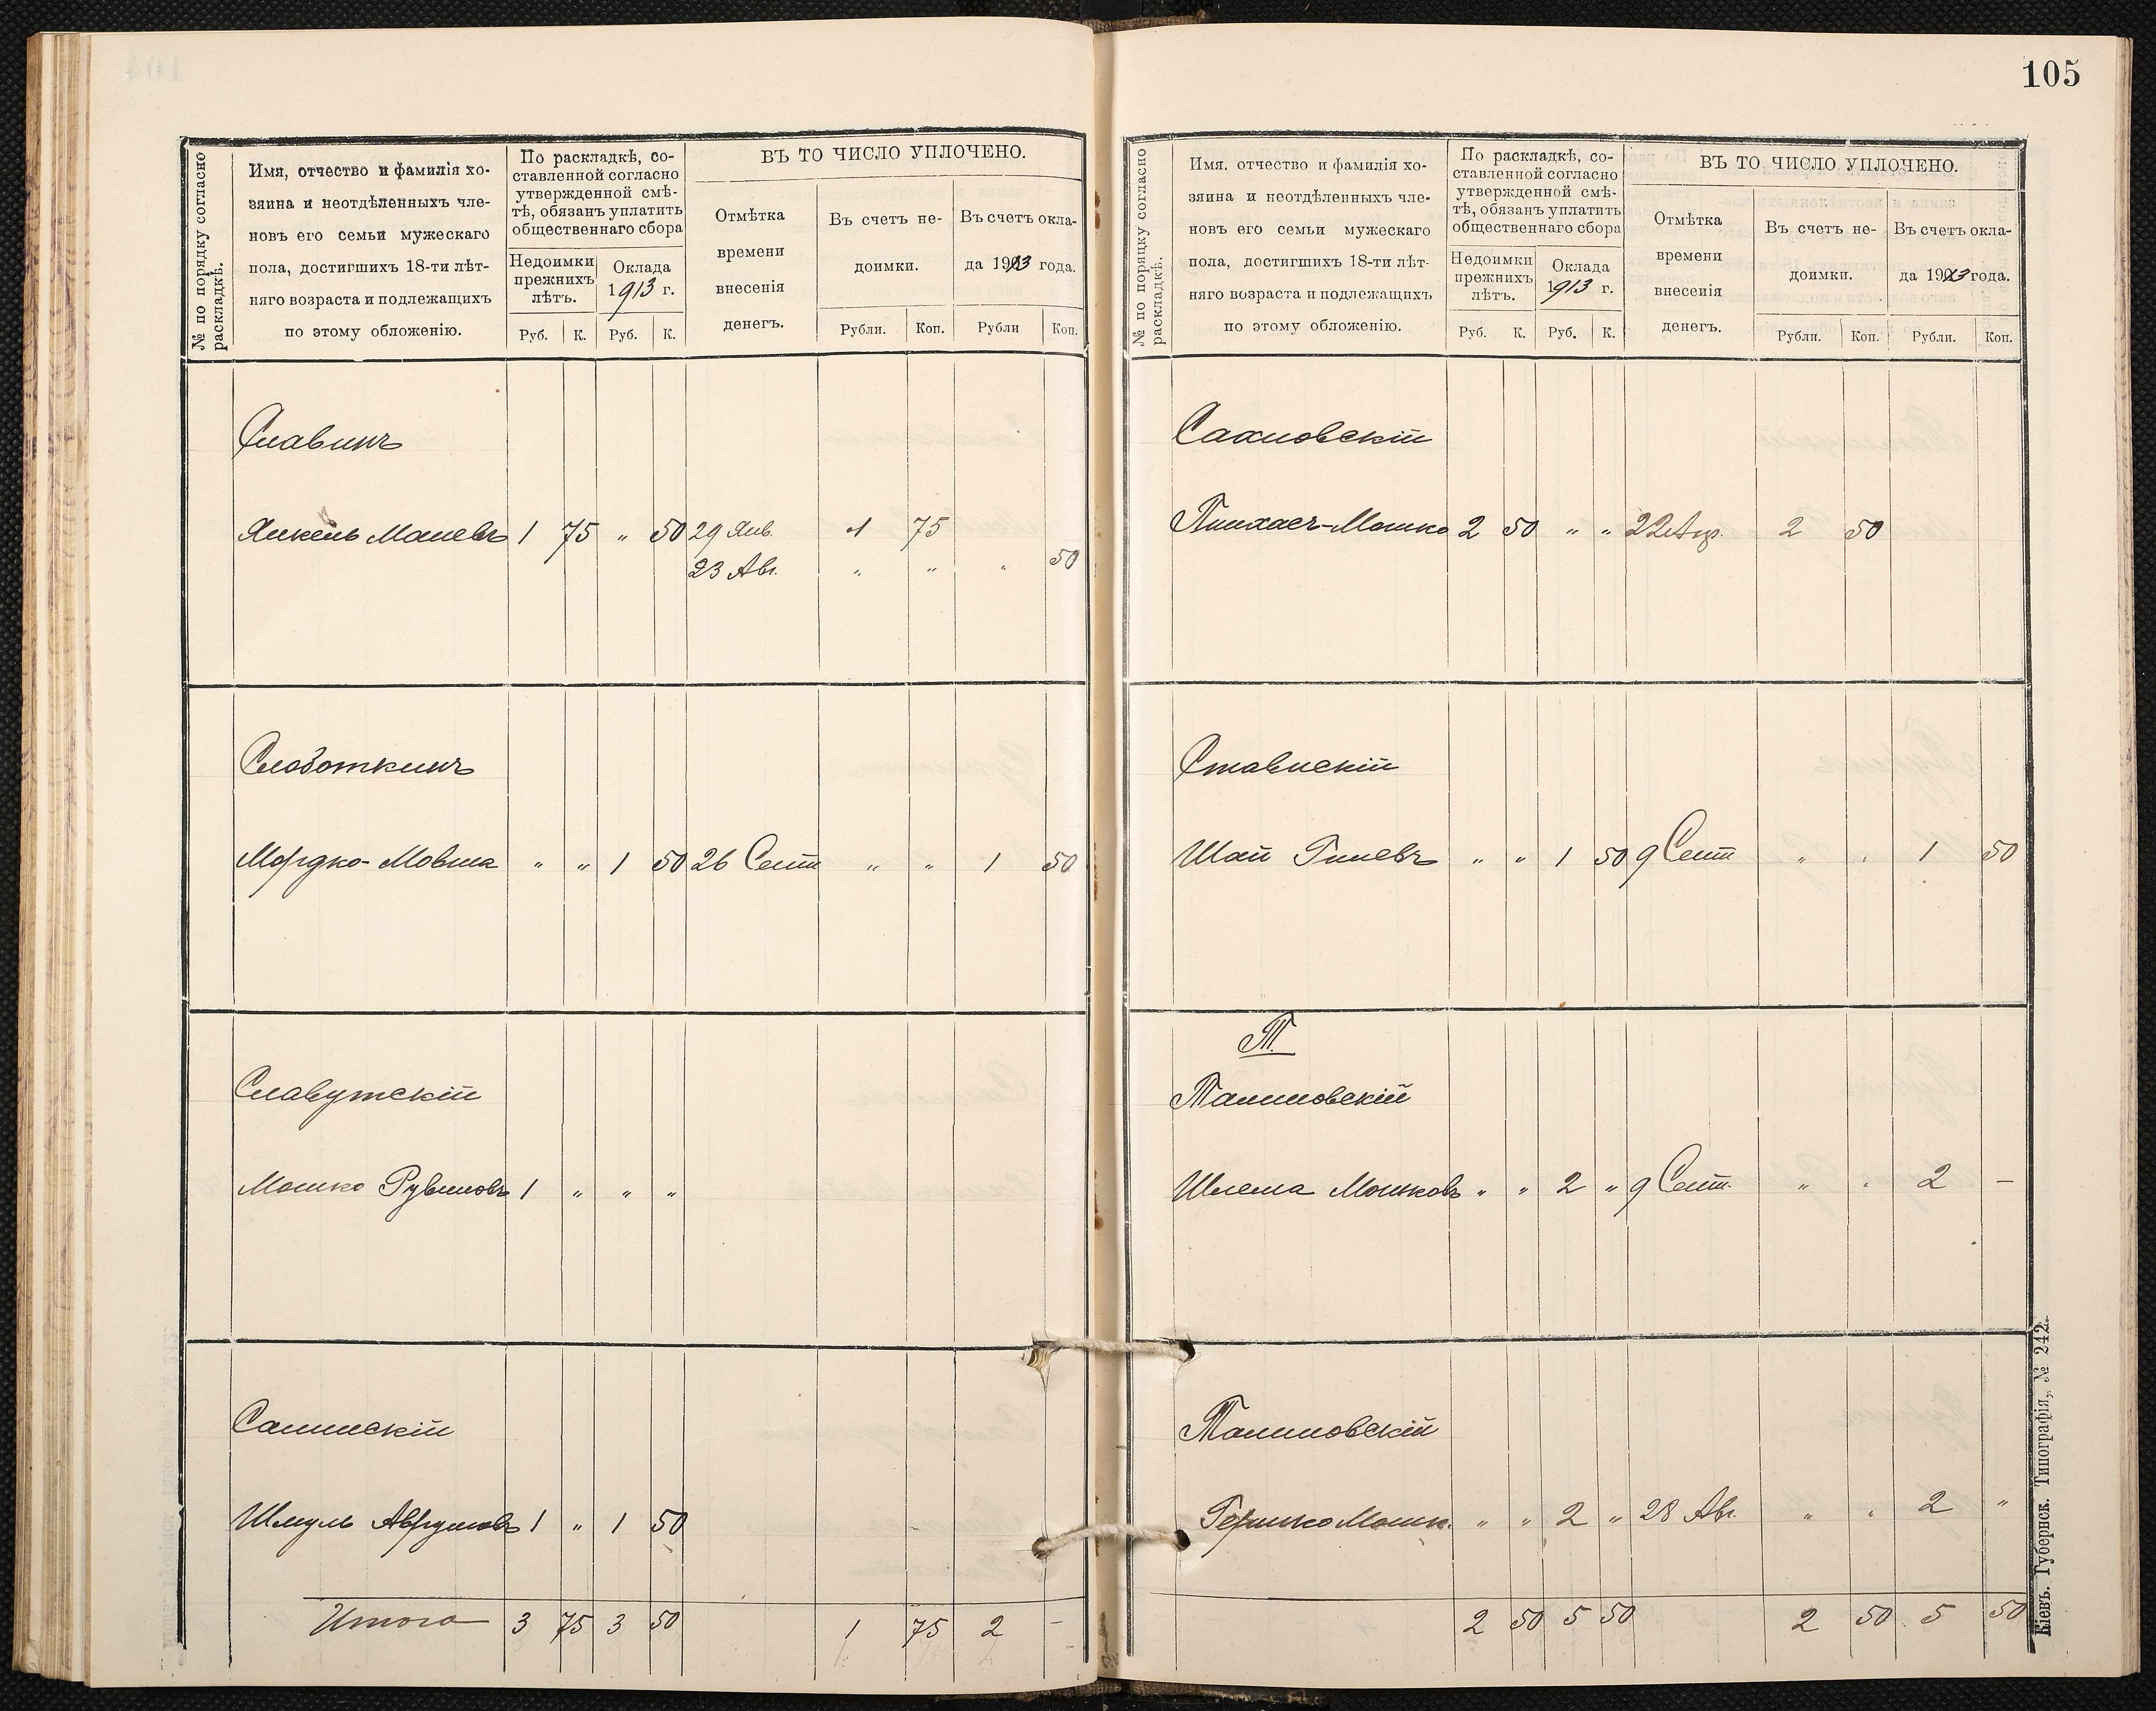 105
№ по порядку согласно раскладкѣ.
Имя, отчество и фамилія хо-
зяина и неотдѣленныхъ чле-
новъ его семьи мужескаго
пола, достигшихъ 18-ти лѣт-
няго возраста и подлежащихъ
по этому обложенію.
По раскладкѣ, со-
ставленной согласно
утвержденной смѣ-
тѣ, обязанъ уплатить
общественнаго сбора
Недоимки
прежнихъ
лѣтъ.
Оклада
1913 г.
Руб. К. Руб. К.
ВЪ ТО ЧИСЛО УПЛОЧЕНО.
Отмѣтка
времени
внесенія
денегъ.
Въ счетъ не-
доимки.
Въ счетъ окла-
да 1913 года.
Рубли. Коп. Рубли Коп.
Славинъ
Янкель Маневъ 1 75 „ 50 29 Янв. 1 75
23 Авг. „ „ „ 50
Слободкинъ
Мордко-Мовша „ „ 1 50 26 Сент „ „ 1 50
Славутскій
Мошко Рувиновъ 1 „ „ „
Салинскій
Шмуль Аврумовъ 1 „ 1 50
Итого 3 75 3 50 1 75 2 -
№ по порядку согласно раскладкѣ.
Имя, отчество и фамилія хо-
зяина и неотдѣленныхъ чле-
новъ его семьи мужескаго
пола, достигшихъ 18-ти лѣт-
няго возраста и подлежащихъ
по этому обложенію.
По раскладкѣ, со-
ставленной согласно
утвержденной смѣ-
тѣ, обязанъ уплатить
общественнаго сбора
Недоимки
прежнихъ
лѣтъ.
Оклада
1913 г.
Руб. К. Руб. К.
ВЪ ТО ЧИСЛО УПЛОЧЕНО.
Отмѣтка
времени
внесенія
денегъ.
Въ счетъ не-
доимки.
Въ счетъ окла-
да 1913 года.
Рубли. Коп. Рубли. Коп.
Сахновскій
Пинхасъ-Мошко 2 50 „ „ 22 Апр. 2 50
Ставискій
Шай Гилевъ „ „ 1 50 9 Сент „ „ 1 50
Т.
Талиновскій
Шлема Мошковъ „ „ 2 „ 9 Сент. „ „ 2 –
Талиновскій
Гершко Мошк. „ „ 2 „ 28 Авг. „ „ 2 „
2 50 5 50 2 50 5 50
Кіевъ. Губернск. Типографія, № 242.